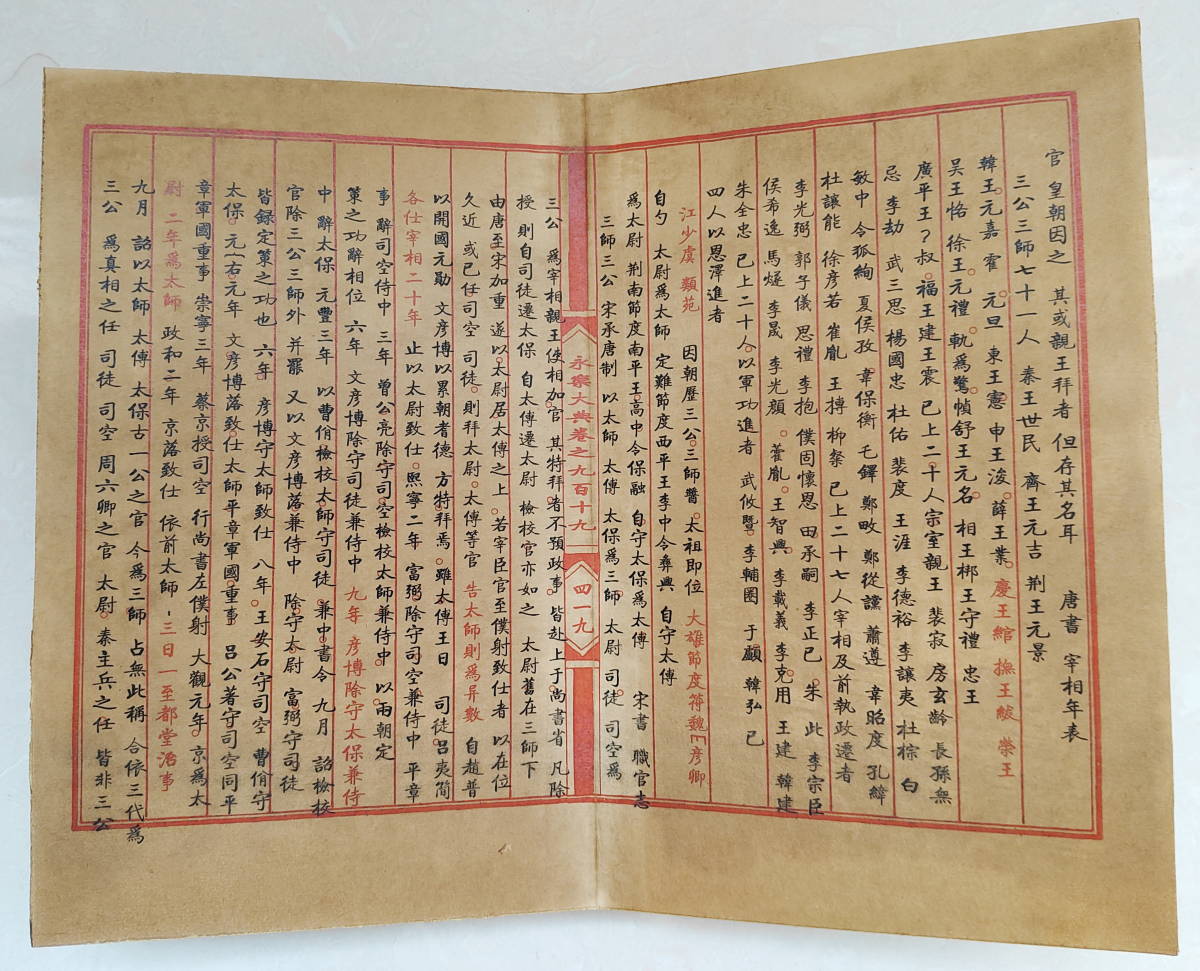 官 皇朝因之 其或親王拜者 但存其名耳 唐書 宰相年表
三公三師七十一人 秦王世民 齊王元吉 荆王元景
韓王元嘉 霍 元旦 東王憲 申王浚 薛王業 慶王綰 撫王紱 榮王
吴王恪 徐王元禮 軌爲驚 幀舒王元名 相王郴王守禮 忠王
廣平王 叔 福王建王震 已上二十人宗室親王 裴寂 房玄齡 長孫無
忌 李劫 武三思 楊國忠 杜佑 裴度 王涯 李德裕 李讓夷 杜棕 白
敏中 令狐絢 夏侯孜 韋保衡 王鐸 鄭畋 鄭從讜 蕭遵 韋昭度 孔緯
杜讓能 徐彦若 崔胤 王摶 柳粲 已上二十七人宰相及前執政遷者
李光弼 郭子儀 思禮 李抱 僕固懷恩 田承嗣 李正已 朱 此 李宗臣
侯希逸 馬燧 李晟 李光顔 董胤 王智興 李載義 李克用 王建 韓建
朱全忠 已上二十人以軍功進者 武攸暨 李輔圈 于頔 韓弘 已
四人以恩澤進者
江少虞 類苑 因朝歷三公三師 太祖即位 大雄節度符魏 彦卿
自勺 太尉爲太師 定難節度西平王李中令彝興 自守太傅
爲太尉 荆南節度南平王高中令保融 自守太保爲太傅 宋書 職官志
三師三公 宋承唐制 以太師 太傅 太保爲三師 太尉 司徒 司空爲
永樂大典卷之九百十九
四一九
三公 爲宰相親王使相加官 其特拜者不預政事 皆赴上于尚書省 凡除
授 則自司徒遷太保 自太傅遷太尉 檢校官亦如之 太尉舊在三師下
由唐至宋加重 遂以太尉居太傅之上 若宰臣官至僕射致仕者 以在位
久近 或已任司空 司徒 則拜太尉 太傅等官 告太師則爲昇數 自趙普
以開國元勛 文彦博以累朝者德 方特拜焉 雖太傅王日 司徒吕夷简
各仕宰相二十年 止以太尉致仕 熙寧二年 富弼除守司空兼侍中 平章
事 辭司空侍中 三年 曾公亮除守司空檢校太師兼侍中 以兩朝定
策之功辭相位 六年 文彦博除守司徒兼侍中 九年 彦博除守太保兼侍
中 辭太保 元豐三年 以曹佾檢校太師守司徒 兼中書令 九月 詔檢校
官除三公三師外 并罷 又以文彦博落兼侍中 除守太尉 富弼守司徒
皆録定策之功也 六年 彦博守太師致仕 八年 王安石守司空 曹佾守
太保 元 右元年 文彦博落致仕太師平章軍國重事 吕公著守司空同平
章軍國重事 崇寧三年 蔡京授司空 行尚書左僕射 大觀元年 京爲太
尉 二年爲太師 政和二年 京落致仕 依前太師 三日一至都堂治事
九月 詔以太師 太傅 太保古一公之官 今爲三師 占無此稱 合依三代爲
三公 爲真相之任 司徒 司空 周六卿之官 太尉 秦主兵之任 皆非三公